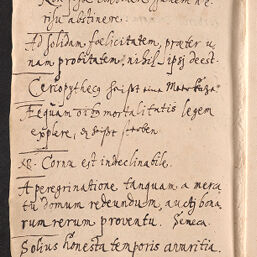 risu abstinere.
Ad solidam fœlicitatem, præter u,
nam probitatem, nihil ipsj deest.
Cercopythecq heißt eine
Aequam omormalitatis legem
explere, heißt sterben.
Cornu est indeclinabile.
A peregrinatione tanquam a merca
tu domum redeundum, auctj bona
rum rerum proventu. Seneca.
Solius honesta temporis avaritia.